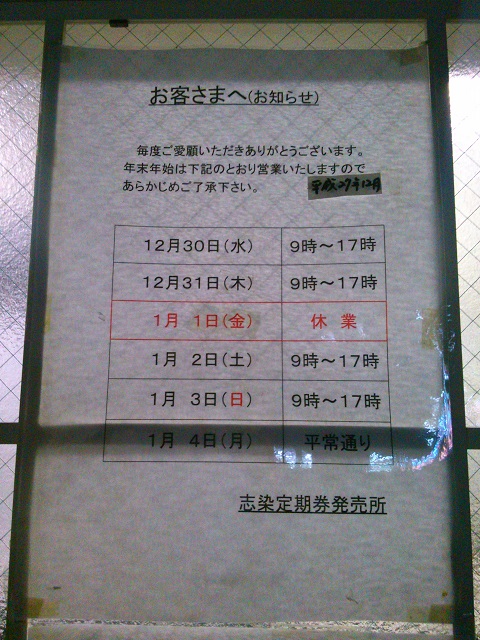 お客さまへ(お知らせ)
毎度ご愛顧いただきありがとうございます。
年末年始は下記のとおり営業いたしますので
あらかじめご了承下さい。
平成27年12月
12月30日(水) 9時～17時
12月31日(木) 9時～17時
1月 1日(金) 休 業
1月 2日(土) 9時～17時
1月 3日(日) 9時～17時
1月 4日(月) 平常通り
志染定期券発売所